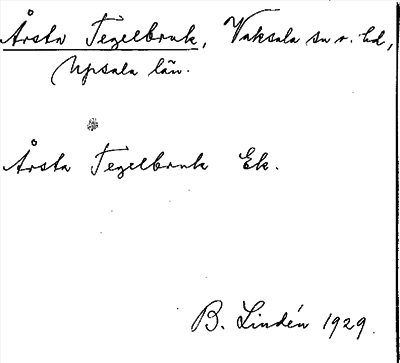 Årsta Tegelbruk, Vaksala sn o. hd,
Upsala län.
Årsta Tegelbruk Ek.
B. Lindén 1929.